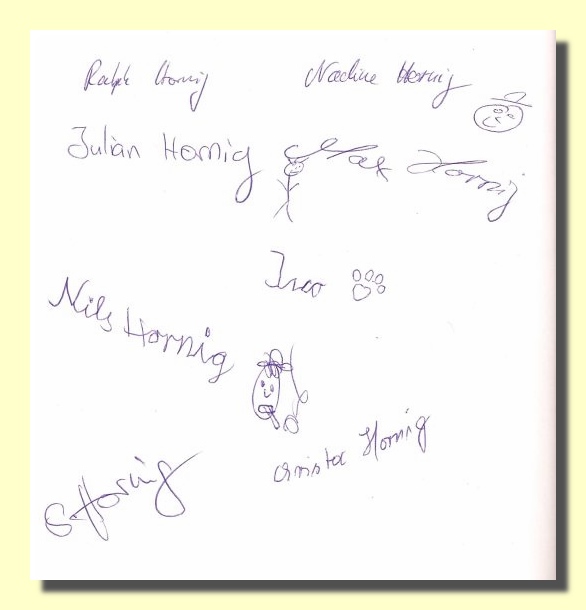 Ralph Hornig
Nadine Hornig
Julian Hornig
Max Hornig
Nils Hornig
Christa Hornig
G. Hornig